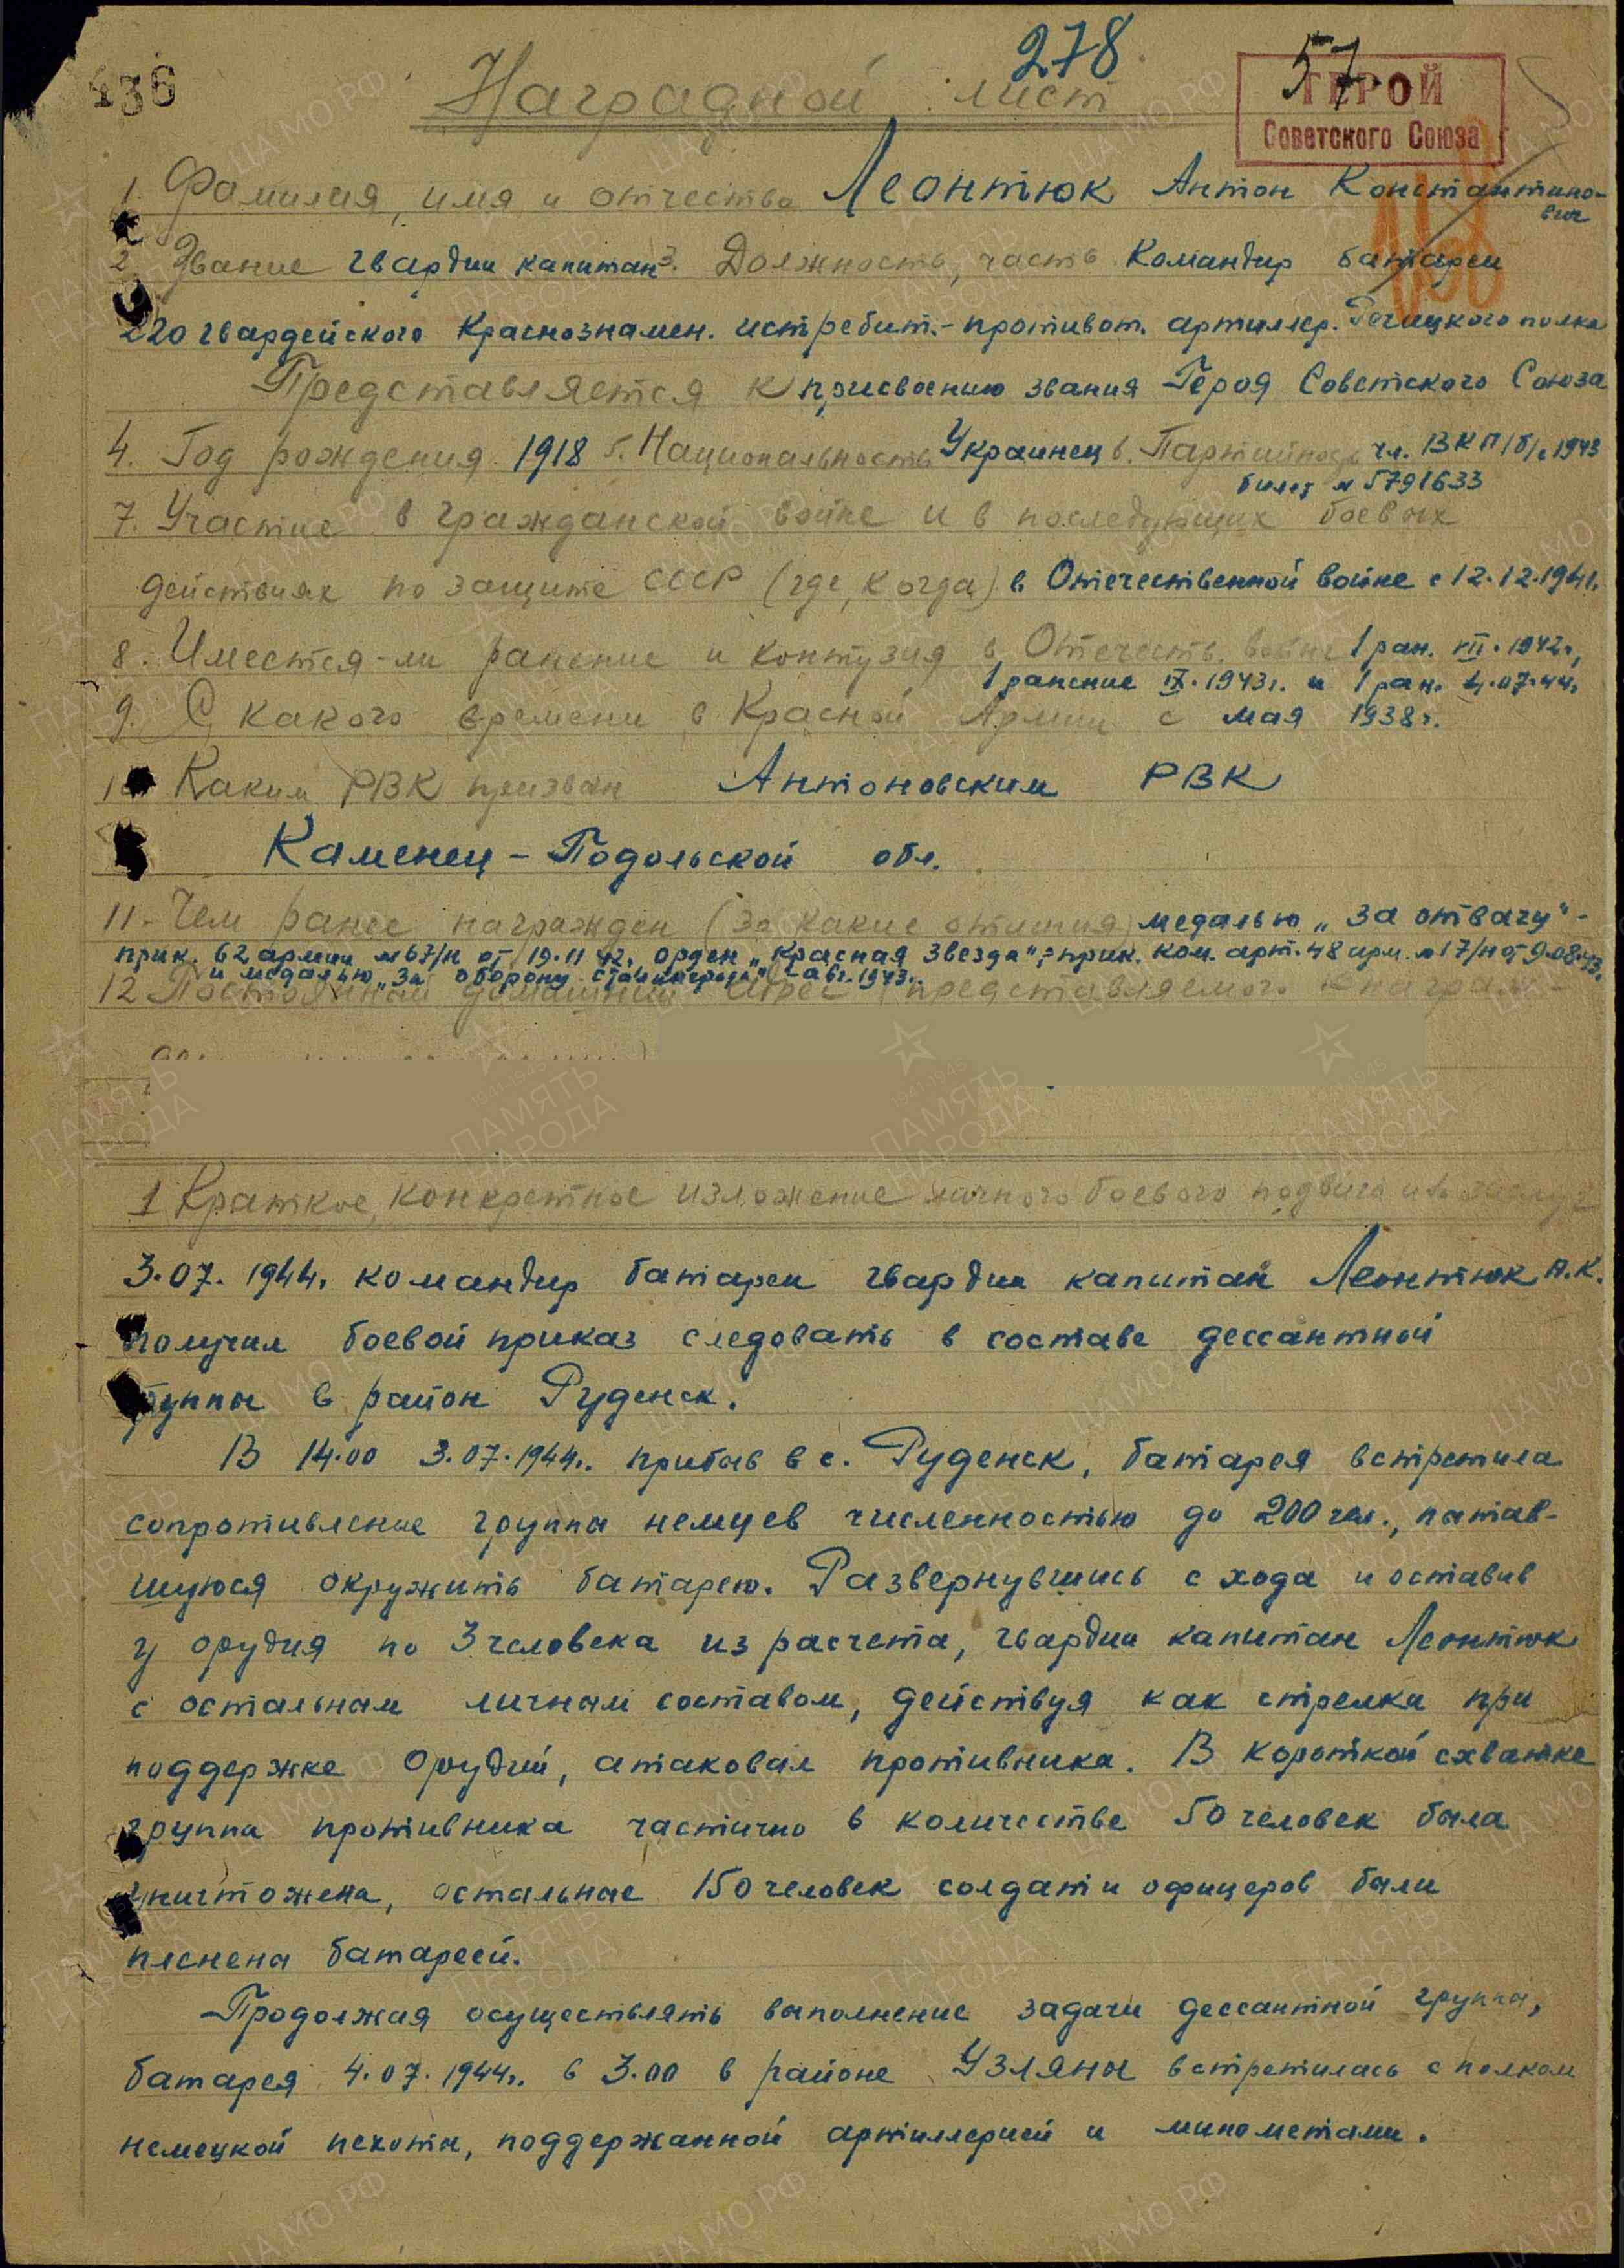 436
278
57
Наградной лист
ГЕРОЙ
Советского Союза
1. Фамилия, имя и отчество Леонтюк Антон Константино-
вич
2. Звание гвардии капитан 3. Должность, часть Командир батареи
220 гвардейского Краснознамен. истребит.-противот. артиллер. Речицкого полка
Представляется к присвоению звания Героя Советского Союза
4. Год рождения 1918 5. Национальность Украинец 6. Партийность чл. ВКП/б/с 1943
билет № 5791633
7. Участие в гражданской войне и в последующих боевых
действиях по защите СССР (где, когда) в Отечественной войне с 12.12.1941.
8. Имеется-ли ранение и контузия в Отечеств. войне 1 ран. VII.1942г.,
1 ранение IX.1943г. и 1 ран. 4.07.44.
9. С какого времени в Красной Армии с мая 1938г.
10 Каким РВК призван Антоновским РВК
Каменец-Подольской обл.
11- Чем ранее награжден (за какие отличия) медалью „За отвагу"-
прик. 62 армии №67/н от 19.11 42. орден „Красная Звезда"; прик. ком. арт. 48 арм. №17/н от 9.08.43.
и медалью „За оборону Сталинграда" авг. 1943г.
12 Постоянный домашний адрес (представляемого к награж-
1 Краткое, конкретное изложение личного боевого подвига или заслуг
3.07.1944г. командир батареи гвардии капитан Леонтюк А.К.
получил боевой приказ следовать в составе дессантной
группы в район Руденск.
В 14.00 3.07.1944г. прибыв в с. Руденск, батарея встретила
сопротивление группы немцев численностью до 200 чел., пытав-
шуюся окружить батарею. Развернувшись с хода и оставив
у орудия по 3 человека из расчета, гвардии капитан Леонтюк
с остальным личным составом, действуя как стрелки при
поддержке орудий, атаковал противника. В короткой схватке
группа противника частично в количестве 50 человек была
уничтожена, остальные 150 человек солдат и офицеров были
пленены батареей.
Продолжая осуществлять выполнение задачи дессантной группы,
батарея 4.07.1944г. в 3.00 в районе Узляны встретилась с полком
немецкой пехоты, поддержанной артиллерией и минометами.